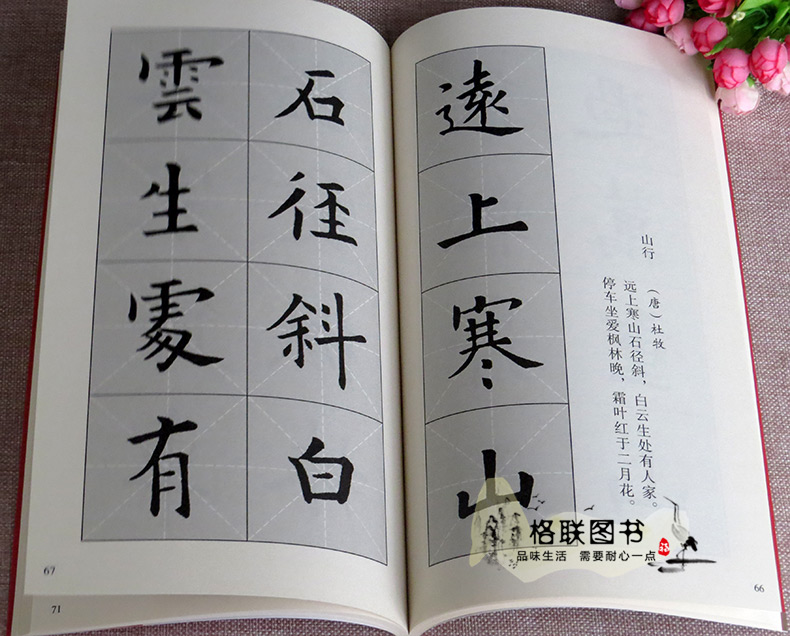 山行
（唐）杜牧
远上寒山石径斜，白云生处有人家。
停车坐爱枫林晚，霜叶红于二月花。
遠上寒山
石徑斜白
雲生處有
格联图书
品味生活 需要耐心一点
66
67
71